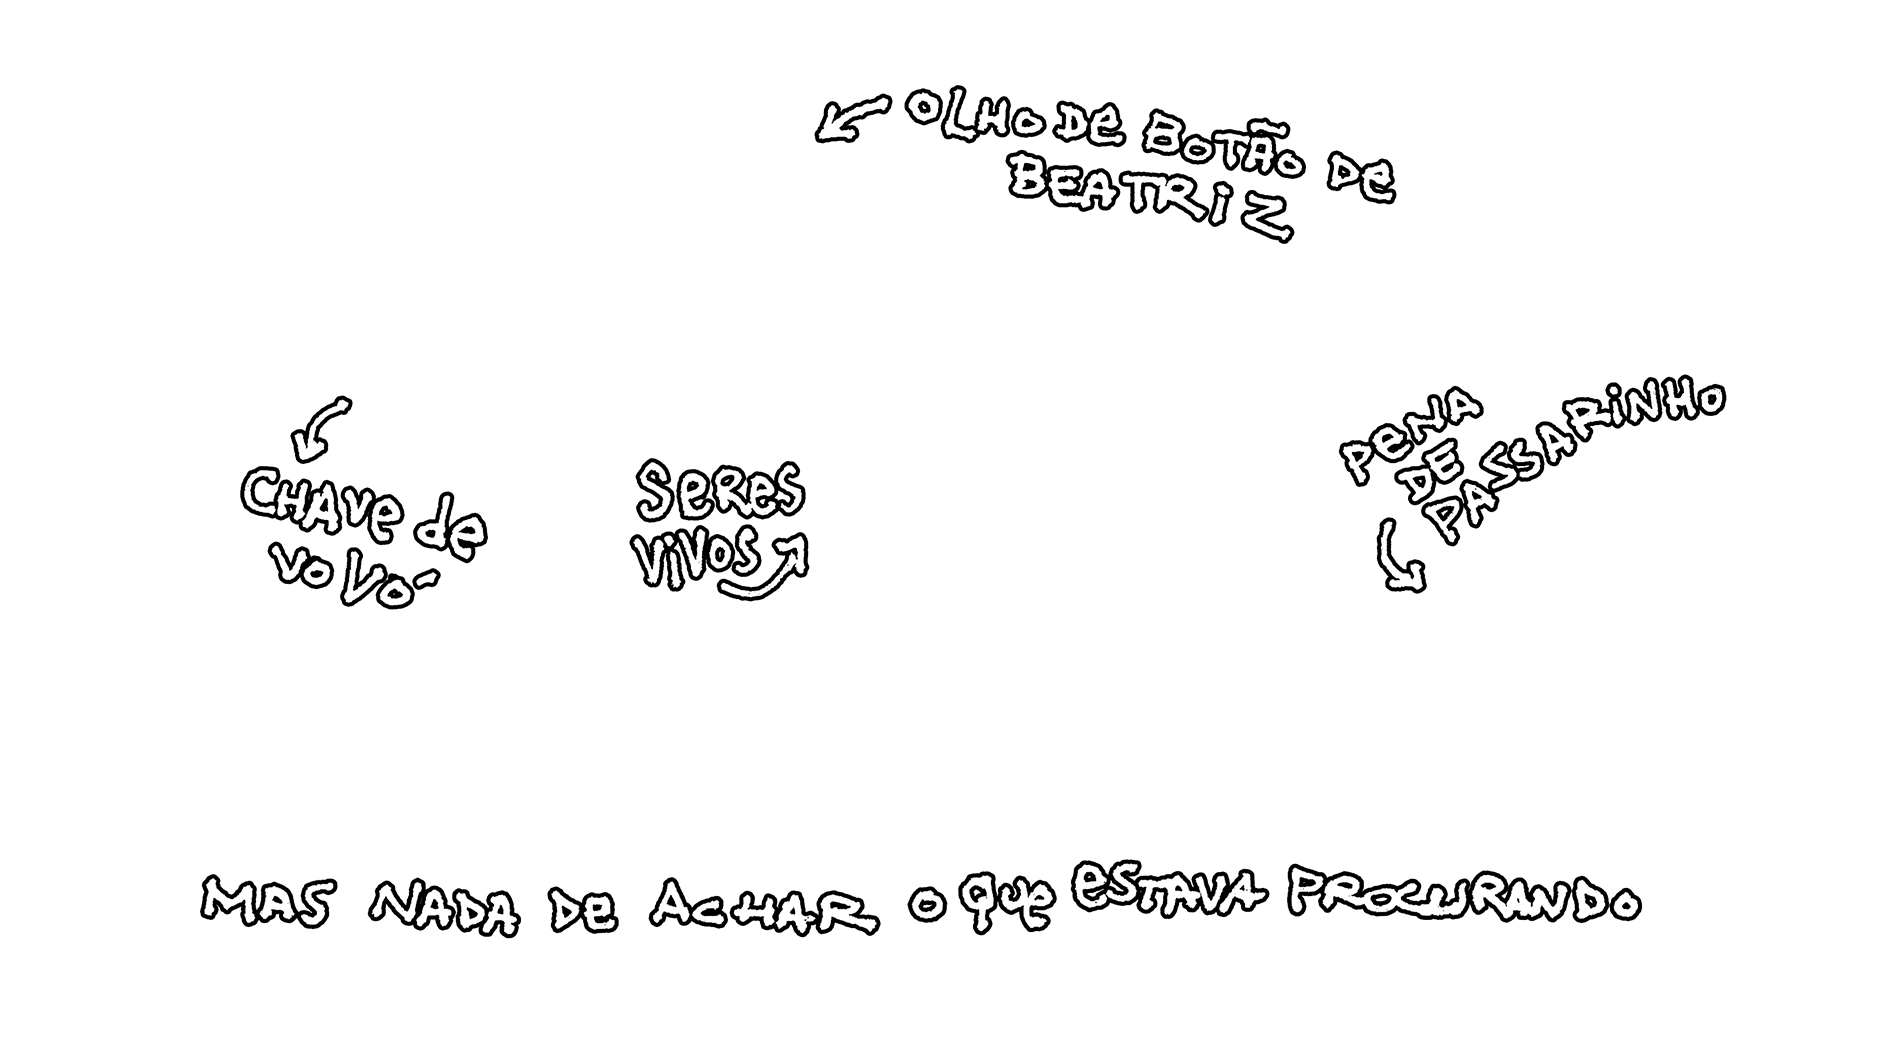 OLHO DE BOTÃO DE
BEATRIZ
CHAVE de
VOVÓ
SeReS
ViVOS
PeNA
DE
PASSARiNHO
MAS NADA DE ACHAR O QUe eSTAVA PROCURANDO